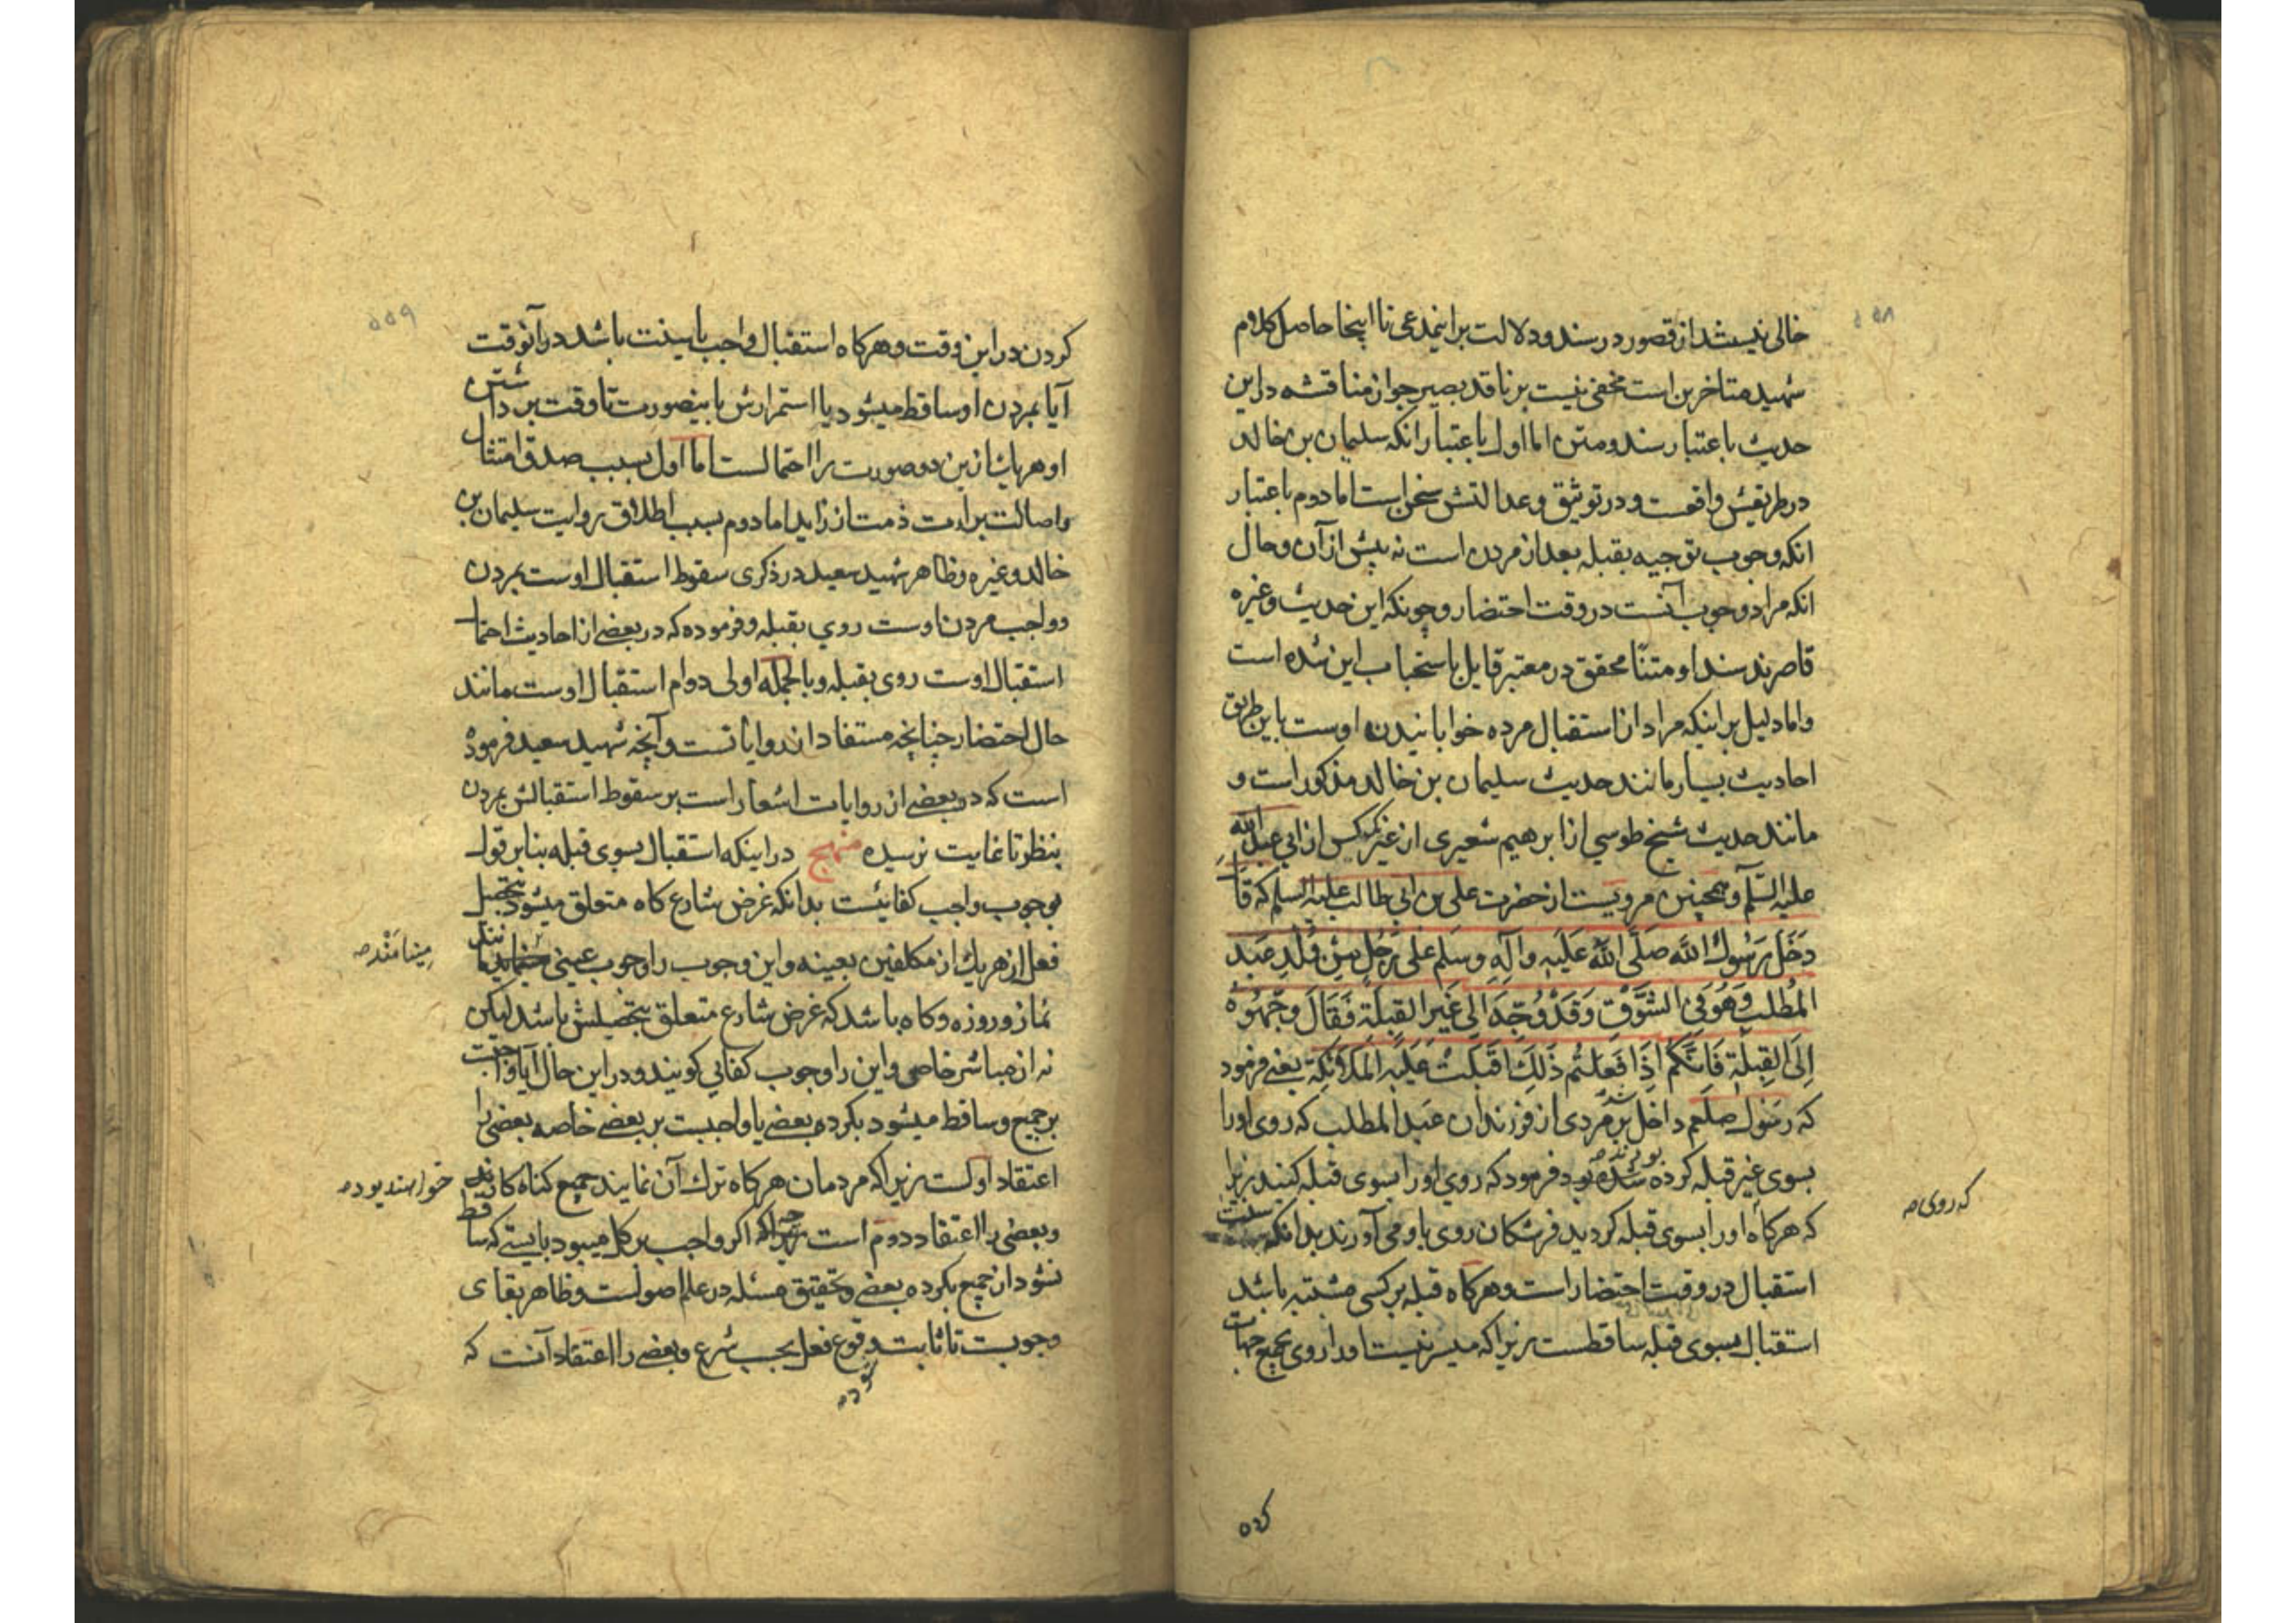 خالی نیستند از قصور در سند و دلالت بر اینمدعی تا اینجا حاصل کلام
شهید متاخرین است مخفی نیست بر ناقد بصیر جواز مناقشه در این
حدیث باعتبار سند و متن اما اول باعتبار انکه سلیمان بن خالد
در طریقش واقعست و در توثیق و عدالتش سخن است اما دوم باعتبار
انکه وجوب توجیه بقبله بعد از مردن است نه پیش از آن و حال
انکه مراد وجوب آنست در وقت احتضار و چونکه این حدیث و غیره
قاصرند سندا و متنًا محقق در معتبر قایل باستحباب این شده است
و اما دلیل بر اینکه مراد از استقبال مرده خوابانیدن اوست باین طریق
احادیث بسیار مانند حدیث سلیمان بن خالد مذکور است و
مانند حدیث شیخ طوسی از ابرهیم شعیری از غیر یکس از ابی عبد الله
علیه السّلم و همچنین مرویست از حضرت علی بن ابی طالب علیه السلم که قال
دَخَلَ رَسُولُ اللَّه صَلَّی اللَّه عَلَیهِ وَآلِهِ وسَلم علی رَجُلٍ مِن وُلْدِ عَبد
المُطلب وَهُوَ فی السَّوْقِ وَقَدْ وُجِّهَ اِلی غَیرِ القِبلَةِ فَقَالَ وَجِّهُوهُ
اِلَی القِبلَةِ فَاِنَّکُم اِذَا فَعَلتُم ذَلِکَ اَقبَلَت عَلَیهِ المَلائِکَة یعنی فرمود
که رسول صلعم داخل شد بر مردی از فرزندان عبد المطلب که روی اورا
بسوی غیر قبله کرده بودند فرمود که روی اورا بسوی قبله کنید زیرا
که هرکاه اورا بسوی قبله کردید فرشتکان روی باو می آورند بدانکه سنت
که روی
استقبال در وقت احتضار است و هرکاه قبله بر کسی مشتبه باشد
استقبال بسوی قبله ساقطست زیرا که میسر نیست اورا روی بجمیع جهات
کردن در این وقت و هرکاه استقبال واجب یا سنت باشد در آنوقت
آیا بمردن او ساقط میشود یا استمرارش باینصورت تا وقت برداشتن
او هریک از ین دو صورت را احتمالست اما اول بسبب صدق امتثال
و اصالت برائت ذمت از زاید اما دوم بسبب اطلاق روایت سلیمان بن
خالد و غیره و ظاهر شهید سعید در ذکری سقوط استقبال اوست بمردن
و واجب مردن اوست روی بقبله و فرموده که در بعضی از احادیث احتمال
استقبال اوست روی بقبله و بالجمله اولی دوام استقبال اوست مانند
حال احتضار چنانچه مستفاد از روایاتست و آنچه شهید سعید فرموده
است که در بعضی از روایات اشعار است بر سقوط استقبالش بمردن
بنظر تا غایت نرسیده منهج در اینکه استقبال بسوی قبله بنابر قول
بوجوب واجب کفائیست بدانکه غرض شارع کاه متعلق میشود بتحصیل
فعل از هریک از مکلفین بعینه و این وجوب را وجوب عینی مینامند مانند
مینامَنْد
نماز و روزه و کاه باشد که غرض شارع متعلق بتحصیلش باشد لیکن
نه از مباشر خاصی و این را وجوب کفایی کویند و در این حال آیا واجبست
بر جمیع و ساقط میشود بکردن بعضی یا واجبست بر بعضی خاصه بعضی را
اعتقاد اولست زیرا که مردمان هرکاه ترک آن نمایند جمیع کناه کارند
خواهند بود
و بعضی را اعتقاد دوم است چرا که اکر واجب بر کل میبود بایستی که ساقط
نشود از جمیع بکرده بعضی و تحقیق مسئله در علم اصولست و ظاهر بقای
وجوبست تا ثابت شود وقوع فعل بحسب شرع و بعضی را اعتقاد آنست که